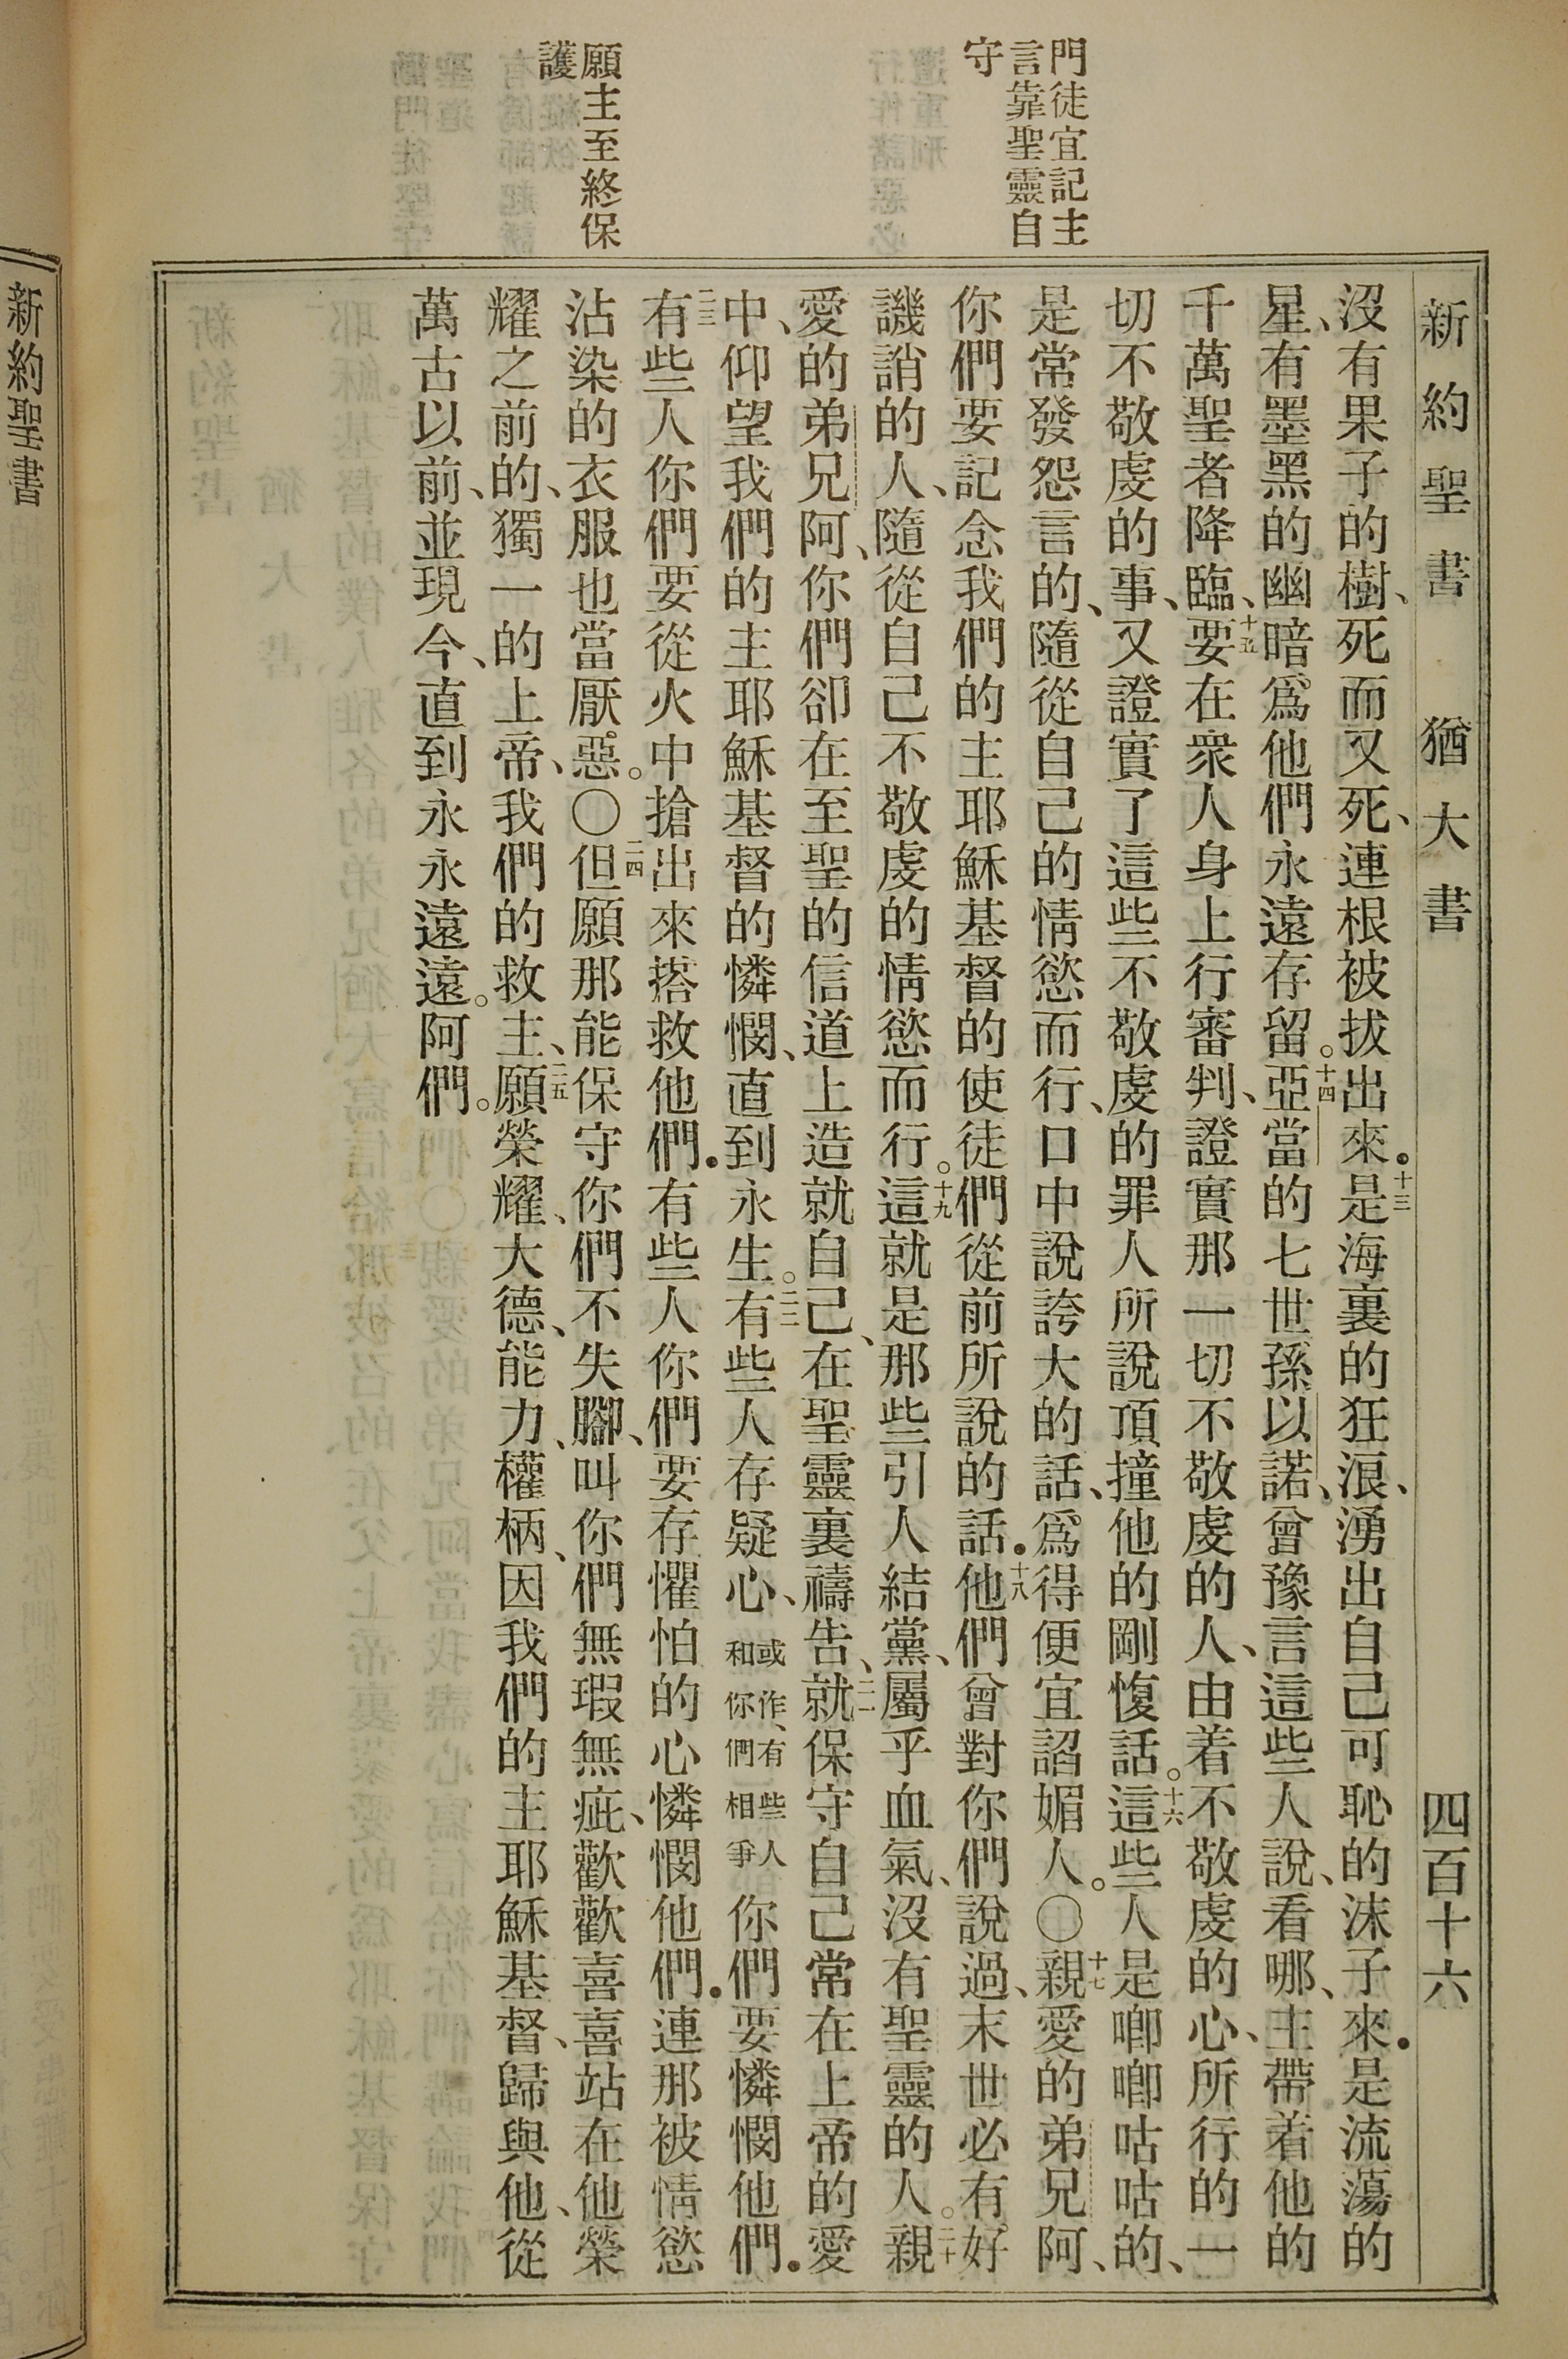 門徒宜記主
言靠聖靈自
守
願主至終保
護
新約聖書　猶大書　四百十六
沒有果子的樹、死而又死、連根被拔出來．十三是海裏的狂浪、湧出自己可恥的沫子來．是流蕩的
星、有墨黑的幽暗爲他們永遠存留。十四亞當的七世孫以諾、曾豫言這些人說、看哪、主帶着他的
千萬聖者降臨、十五要在衆人身上行審判、證實那一切不敬虔的人、由着不敬虔的心、所行的一
切不敬虔的事、又證實了這些不敬虔的罪人所說頂撞他的剛愎話。十六這些人是唧唧咕咕的、
是常發怨言的、隨從自己的情慾而行、口中說誇大的話、爲得便宜諂媚人。〇十七親愛的弟兄阿、
你們要記念我們的主耶穌基督的使徒們從前所說的話．十八他們曾對你們說過、末世必有好
譏誚的人、隨從自己不敬虔的情慾而行。十九這就是那些引人結黨、屬乎血氣、沒有聖靈的人。二十親
愛的弟兄阿、你們卻在至聖的信道上造就自己、在聖靈裏禱告、二一就保守自己常在上帝的愛
中、仰望我們的主耶穌基督的憐憫、直到永生。二二有些人存疑心、或作、有些人和你們相爭你們要憐憫他們．
二三有些人你們要從火中搶出來搭救他們．有些人你們要存懼怕的心憐憫他們．連那被情慾
沾染的衣服也當厭惡。〇二四但願那能保守你們不失腳、叫你們無瑕無疵、歡歡喜喜站在他榮
耀之前的、獨一的上帝、我們的救主、二五願榮耀、大德、能力、權柄、因我們的主耶穌基督、歸與他、從
萬古以前、並現今、直到永永遠遠。阿們。
新約聖書